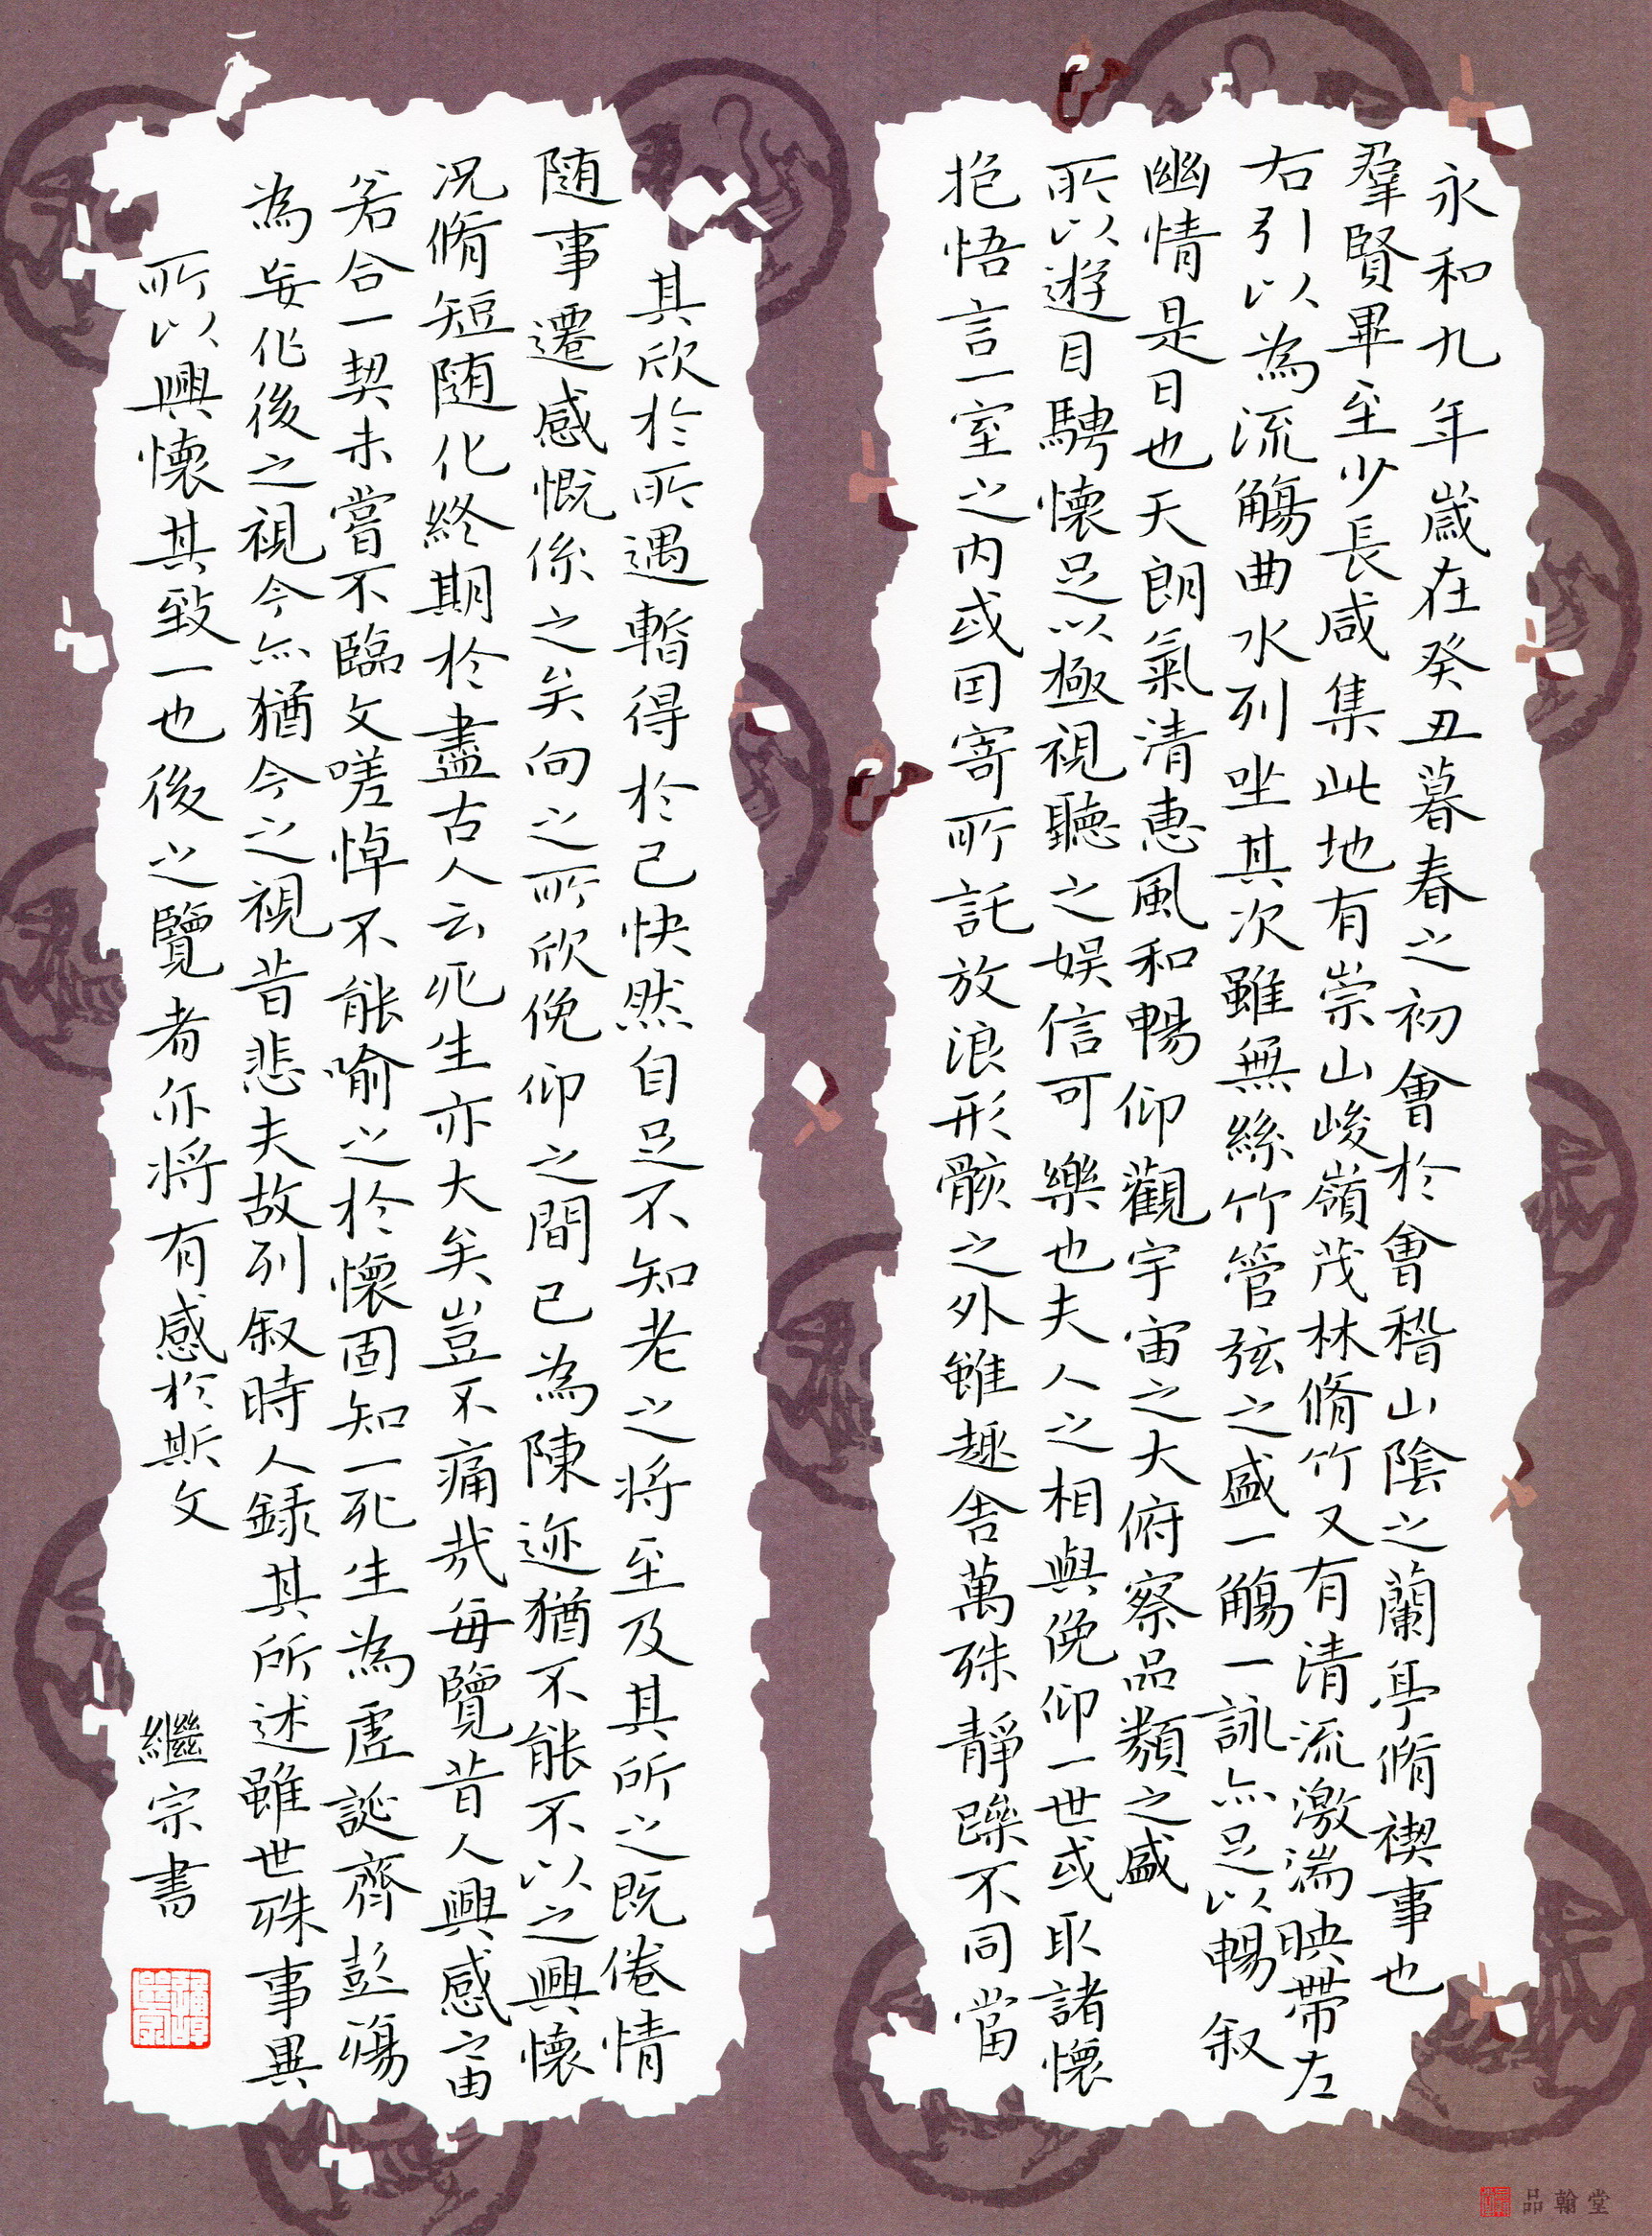 永和九年歲在癸丑暮春之初會於會稽山陰之蘭亭脩禊事也
羣賢畢至少長咸集此地有崇山峻嶺茂林脩竹又有清流激湍映帶左
右引以為流觴曲水列坐其次雖無絲竹管弦之盛一觴一詠亦足以暢叙
幽情是日也天朗氣清惠風和暢仰觀宇宙之大俯察品類之盛
所以遊目騁懷足以極視聽之娛信可樂也夫人之相與俛仰一世或取諸懷
抱悟言一室之內或因寄所託放浪形骸之外雖趣舍萬殊靜躁不同當
其欣於所遇暫得於己快然自足不知老之將至及其所之既倦情
随事遷感慨係之矣向之所欣俛仰之間已為陳迹猶不能不以之興懷
况脩短随化終期於盡古人云死生亦大矣豈不痛哉每覽昔人興感之由
若合一契未嘗不臨文嗟悼不能喻之於懷固知一死生為虛誕齊彭殤
為妄作後之視今亦猶今之視昔悲夫故列叙時人錄其所述雖世殊事異
所以興懷其致一也後之覽者亦將有感於斯文
繼宗書
品翰堂